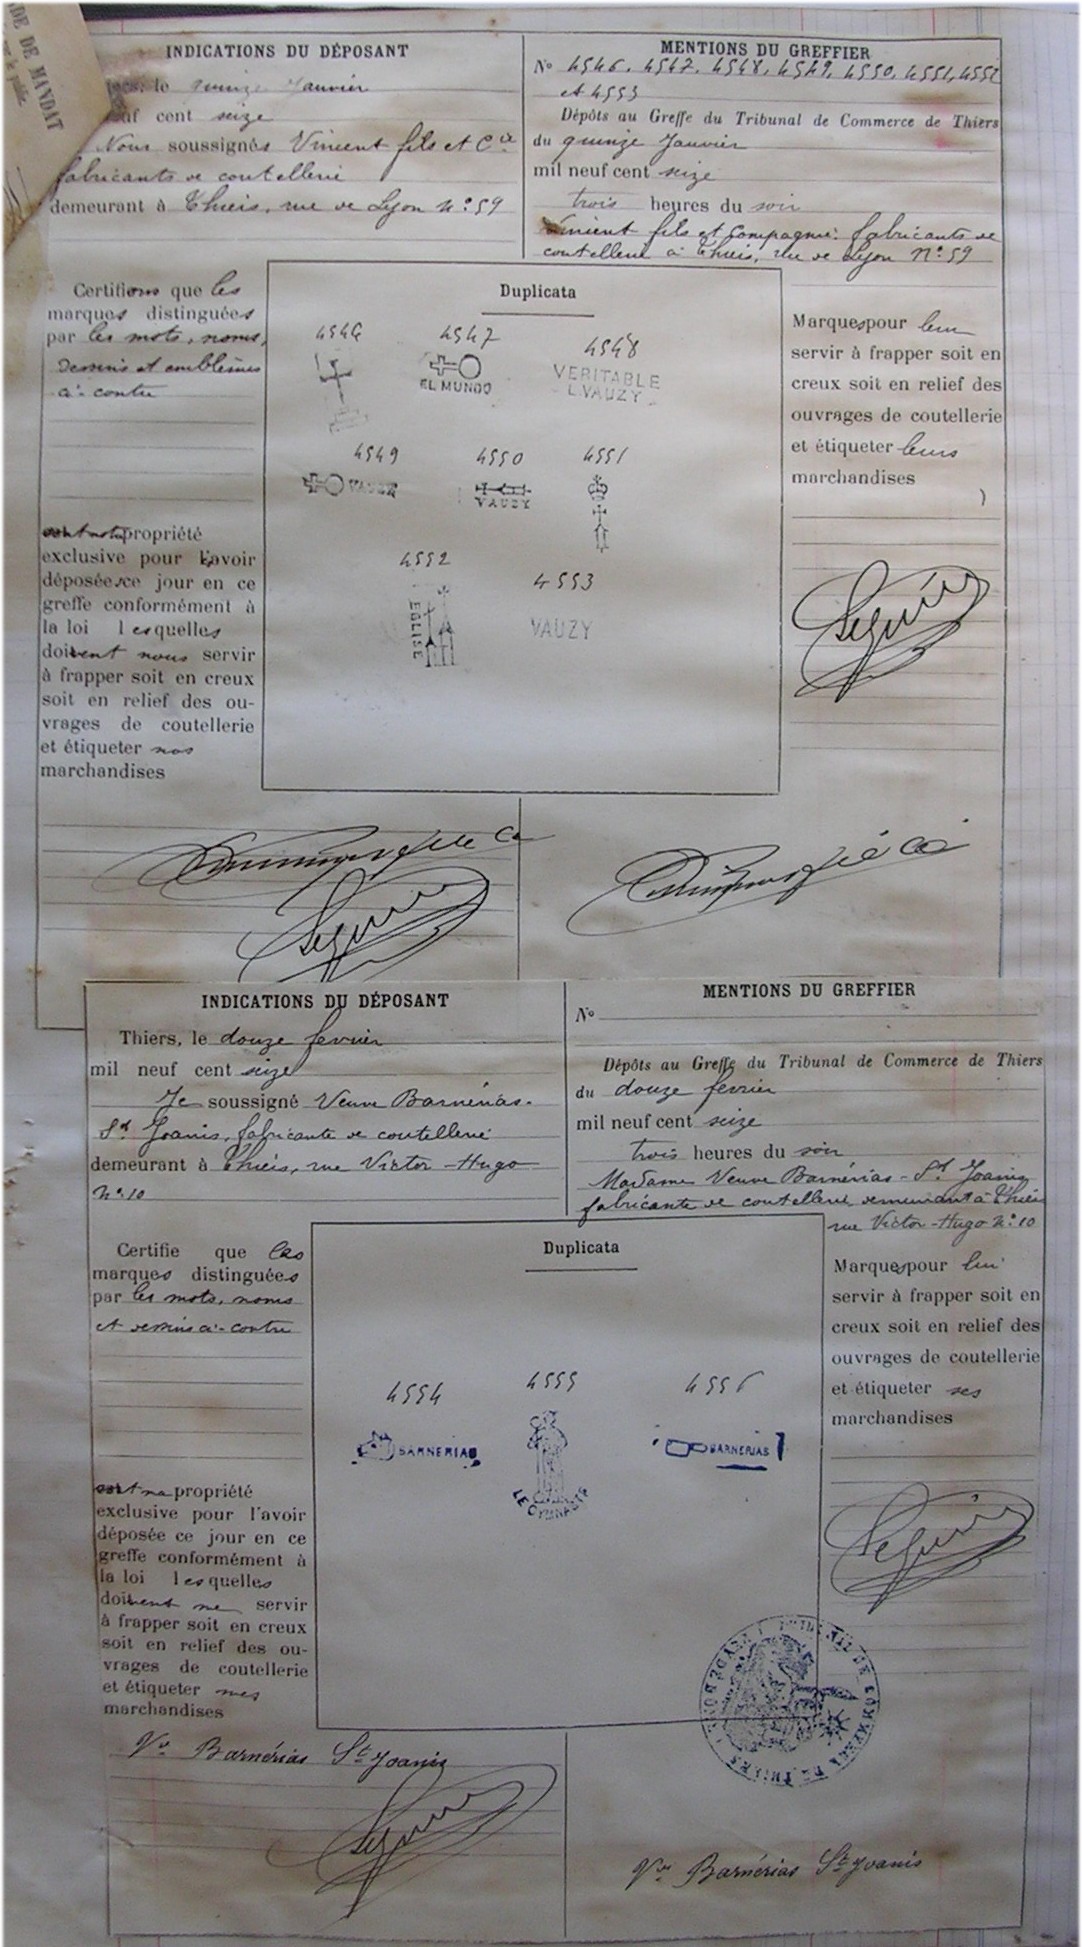 DE DE MANDAT
INDICATIONS DU DÉPOSANT
le quinze Janvier
uf cent seize
Nous soussignés Vincent fils et Cie
fabricants de coutellerie
demeurant à Thiers, rue de Lyon N° 59
MENTIONS DU GREFFIER
No 4546. 4547. 4548. 4549. 4550. 4551. 4552
et 4553
Dépôts au Greffe du Tribunal de Commerce de Thiers
du quinze Janvier
mil neuf cent seize
trois heures du soir
Vincent fils et Compagnie fabricants de
coutellerie à Thiers, rue de Lyon N° 59
Certifions que les
marques distinguées
par les mots, noms,
dessins et emblèmes
ci-contre
sont notre propriété
exclusive pour l'avoir
déposées ce jour en ce
greffe conformément à
la loi lesquelles
doivent nous servir
à frapper soit en creux
soit en relief des ou-
vrages de coutellerie
et étiqueter nos
marchandises
Duplicata
4546 4547 4548
EL MUNDO
VERITABLE
L. VAUZY
4549 4550 4551
VAUZY
VAUZY
4552 4553
EGLISE
VAUZY
Marques pour leur
servir à frapper soit en
creux soit en relief des
ouvrages de coutellerie
et étiqueter leurs
marchandises
Seguin
Seguin
INDICATIONS DU DÉPOSANT
Thiers, le douze fevrier
mil neuf cent seize
Je soussigné Veuve Barnérias-
St Joanis, fabricante de coutellerie
demeurant à Thiers, rue Victor-Hugo
N° 10
MENTIONS DU GREFFIER
No
Dépôts au Greffe du Tribunal de Commerce de Thiers
du douze fevrier
mil neuf cent seize
trois heures du soir
Madame Veuve Barnérias-St Joanis
fabricante de coutellerie demeurant à Thiers
rue Victor-Hugo N° 10
Certifie que les
marques distinguées
par les mots, noms
et dessins ci-contre
sont ma propriété
exclusive pour l'avoir
déposée ce jour en ce
greffe conformément à
la loi lesquelles
doivent me servir
à frapper soit en creux
soit en relief des ou-
vrages de coutellerie
et étiqueter mes
marchandises
Duplicata
4554 4555 4556
BARNERIAS
LE GYMNASTE
BARNERIAS
Marques pour lui
servir à frapper soit en
creux soit en relief des
ouvrages de coutellerie
et étiqueter ses
marchandises
Seguin
TRIBUNAL DE COMMERCE DE THIERS
Ve Barnérias St Joanis
Seguin
Vve Barnérias St Joanis